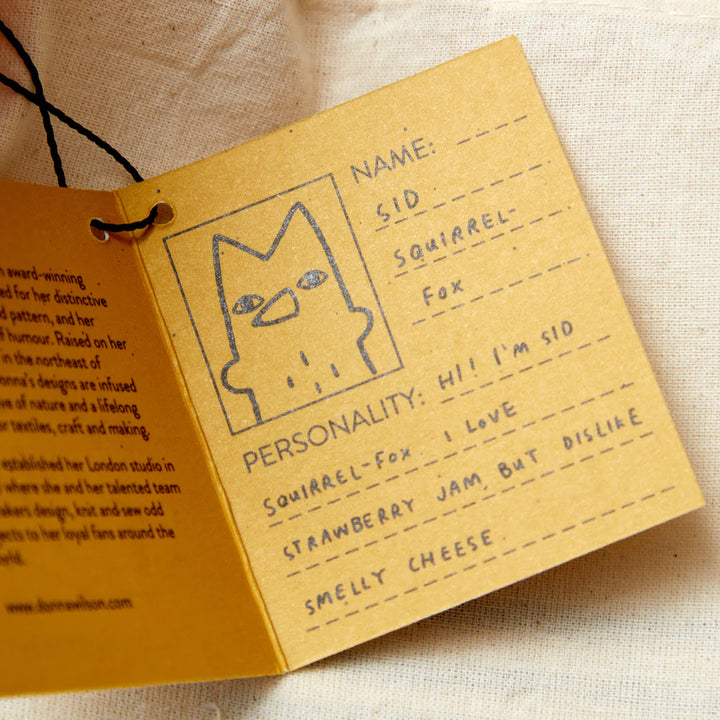 award-winning
ed for her distinctive
d pattern, and her
f humour. Raised on her
in the northeast of
onna's designs are infused
ve of nature and a lifelong
or textiles, craft and making.
established her London studio in
where she and her talented team
akers design, knit and sew odd
jects to her loyal fans around the
orld.
www.donnawilson.com
NAME:
SID
SQUIRREL-
FOX
PERSONALITY: HI! I'M SID
SQUIRREL-FOX. I LOVE
STRAWBERRY JAM BUT DISLIKE
SMELLY CHEESE.